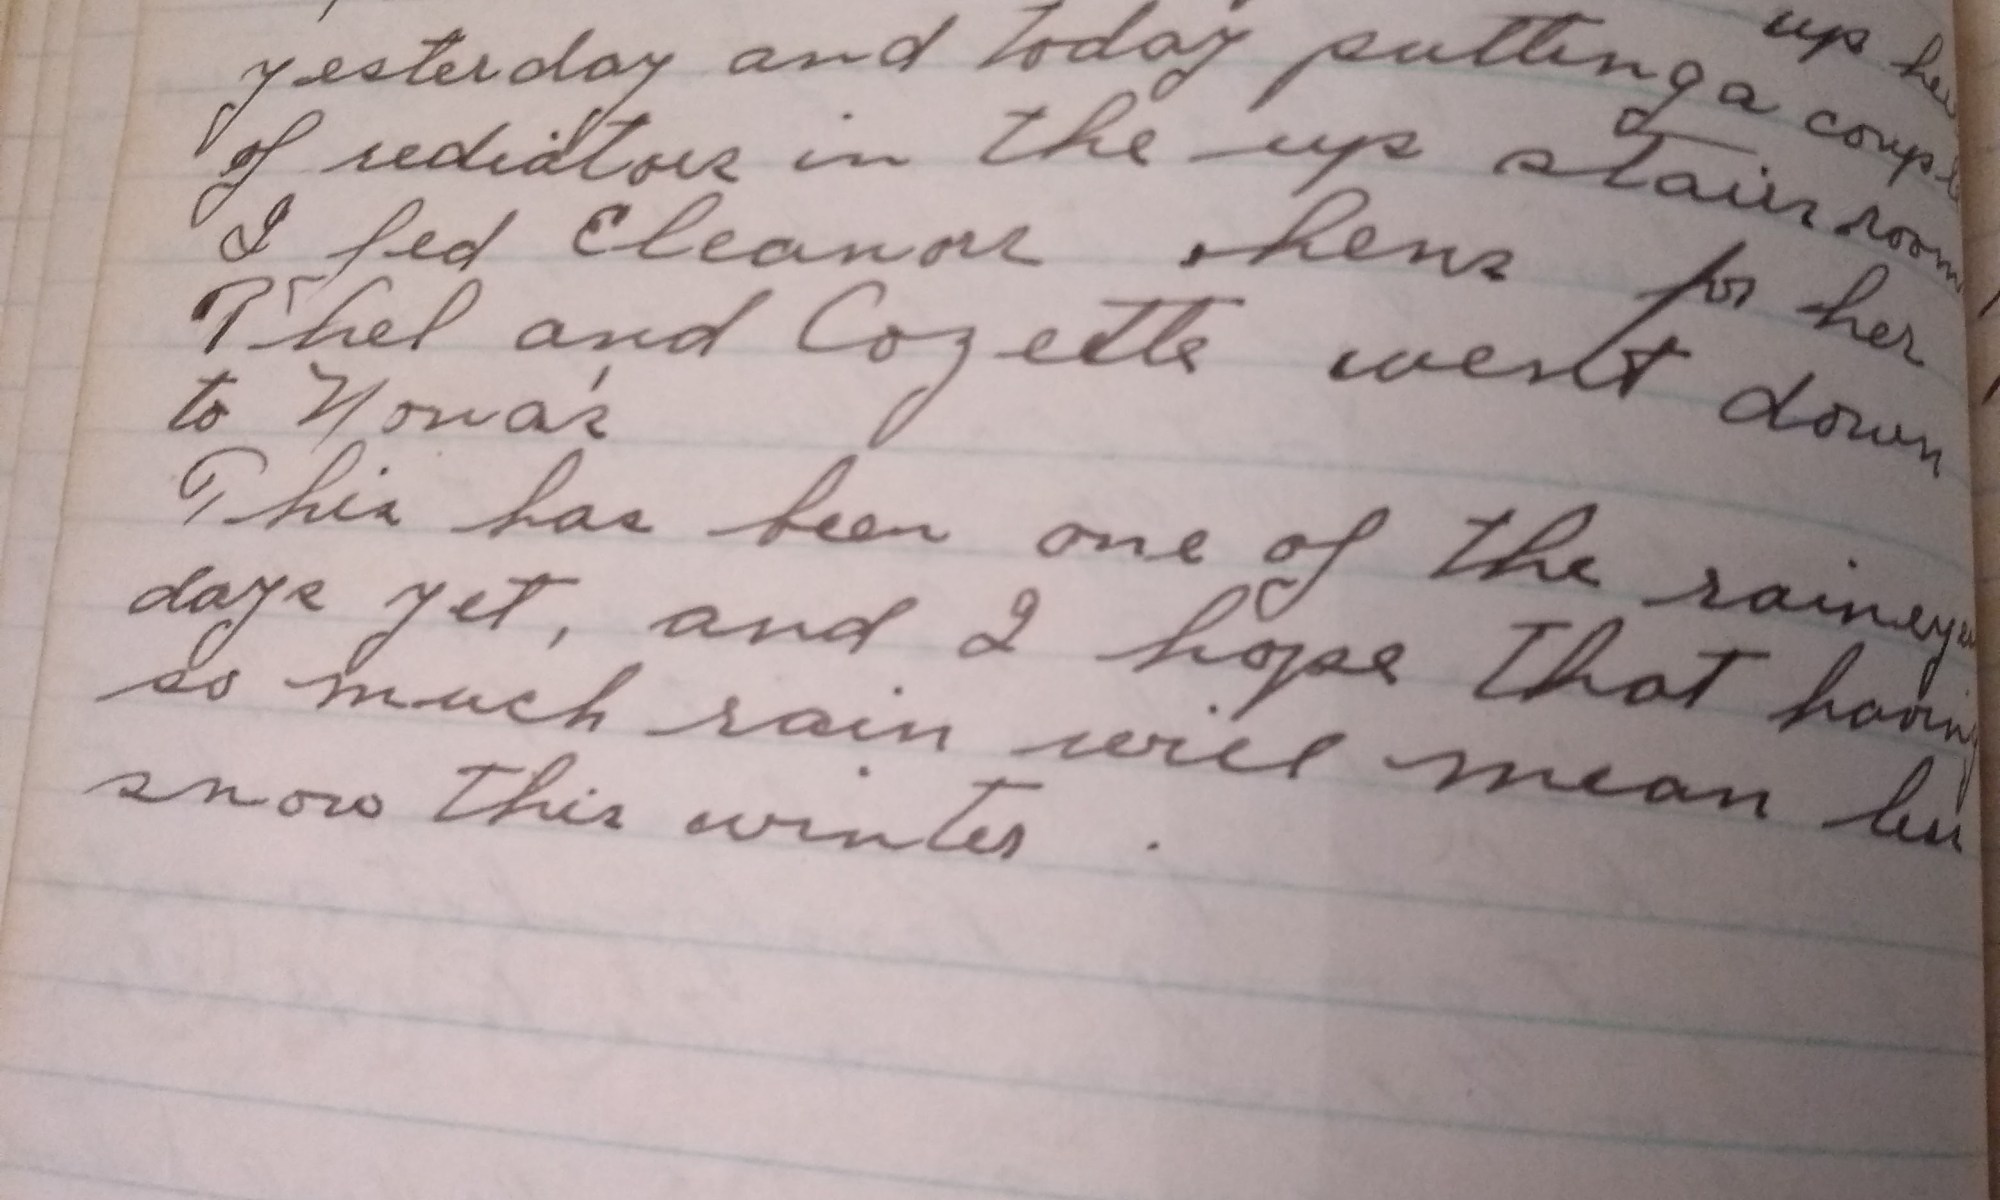 up here
yesterday and today putting a couple
of rediators in the up stairs room
I fed Eleanors hens for her
Thel and Cozette went down
to Nona's
This has been one of the raineyest
days yet, and I hope that having
so much rain will mean less
snow this winter.